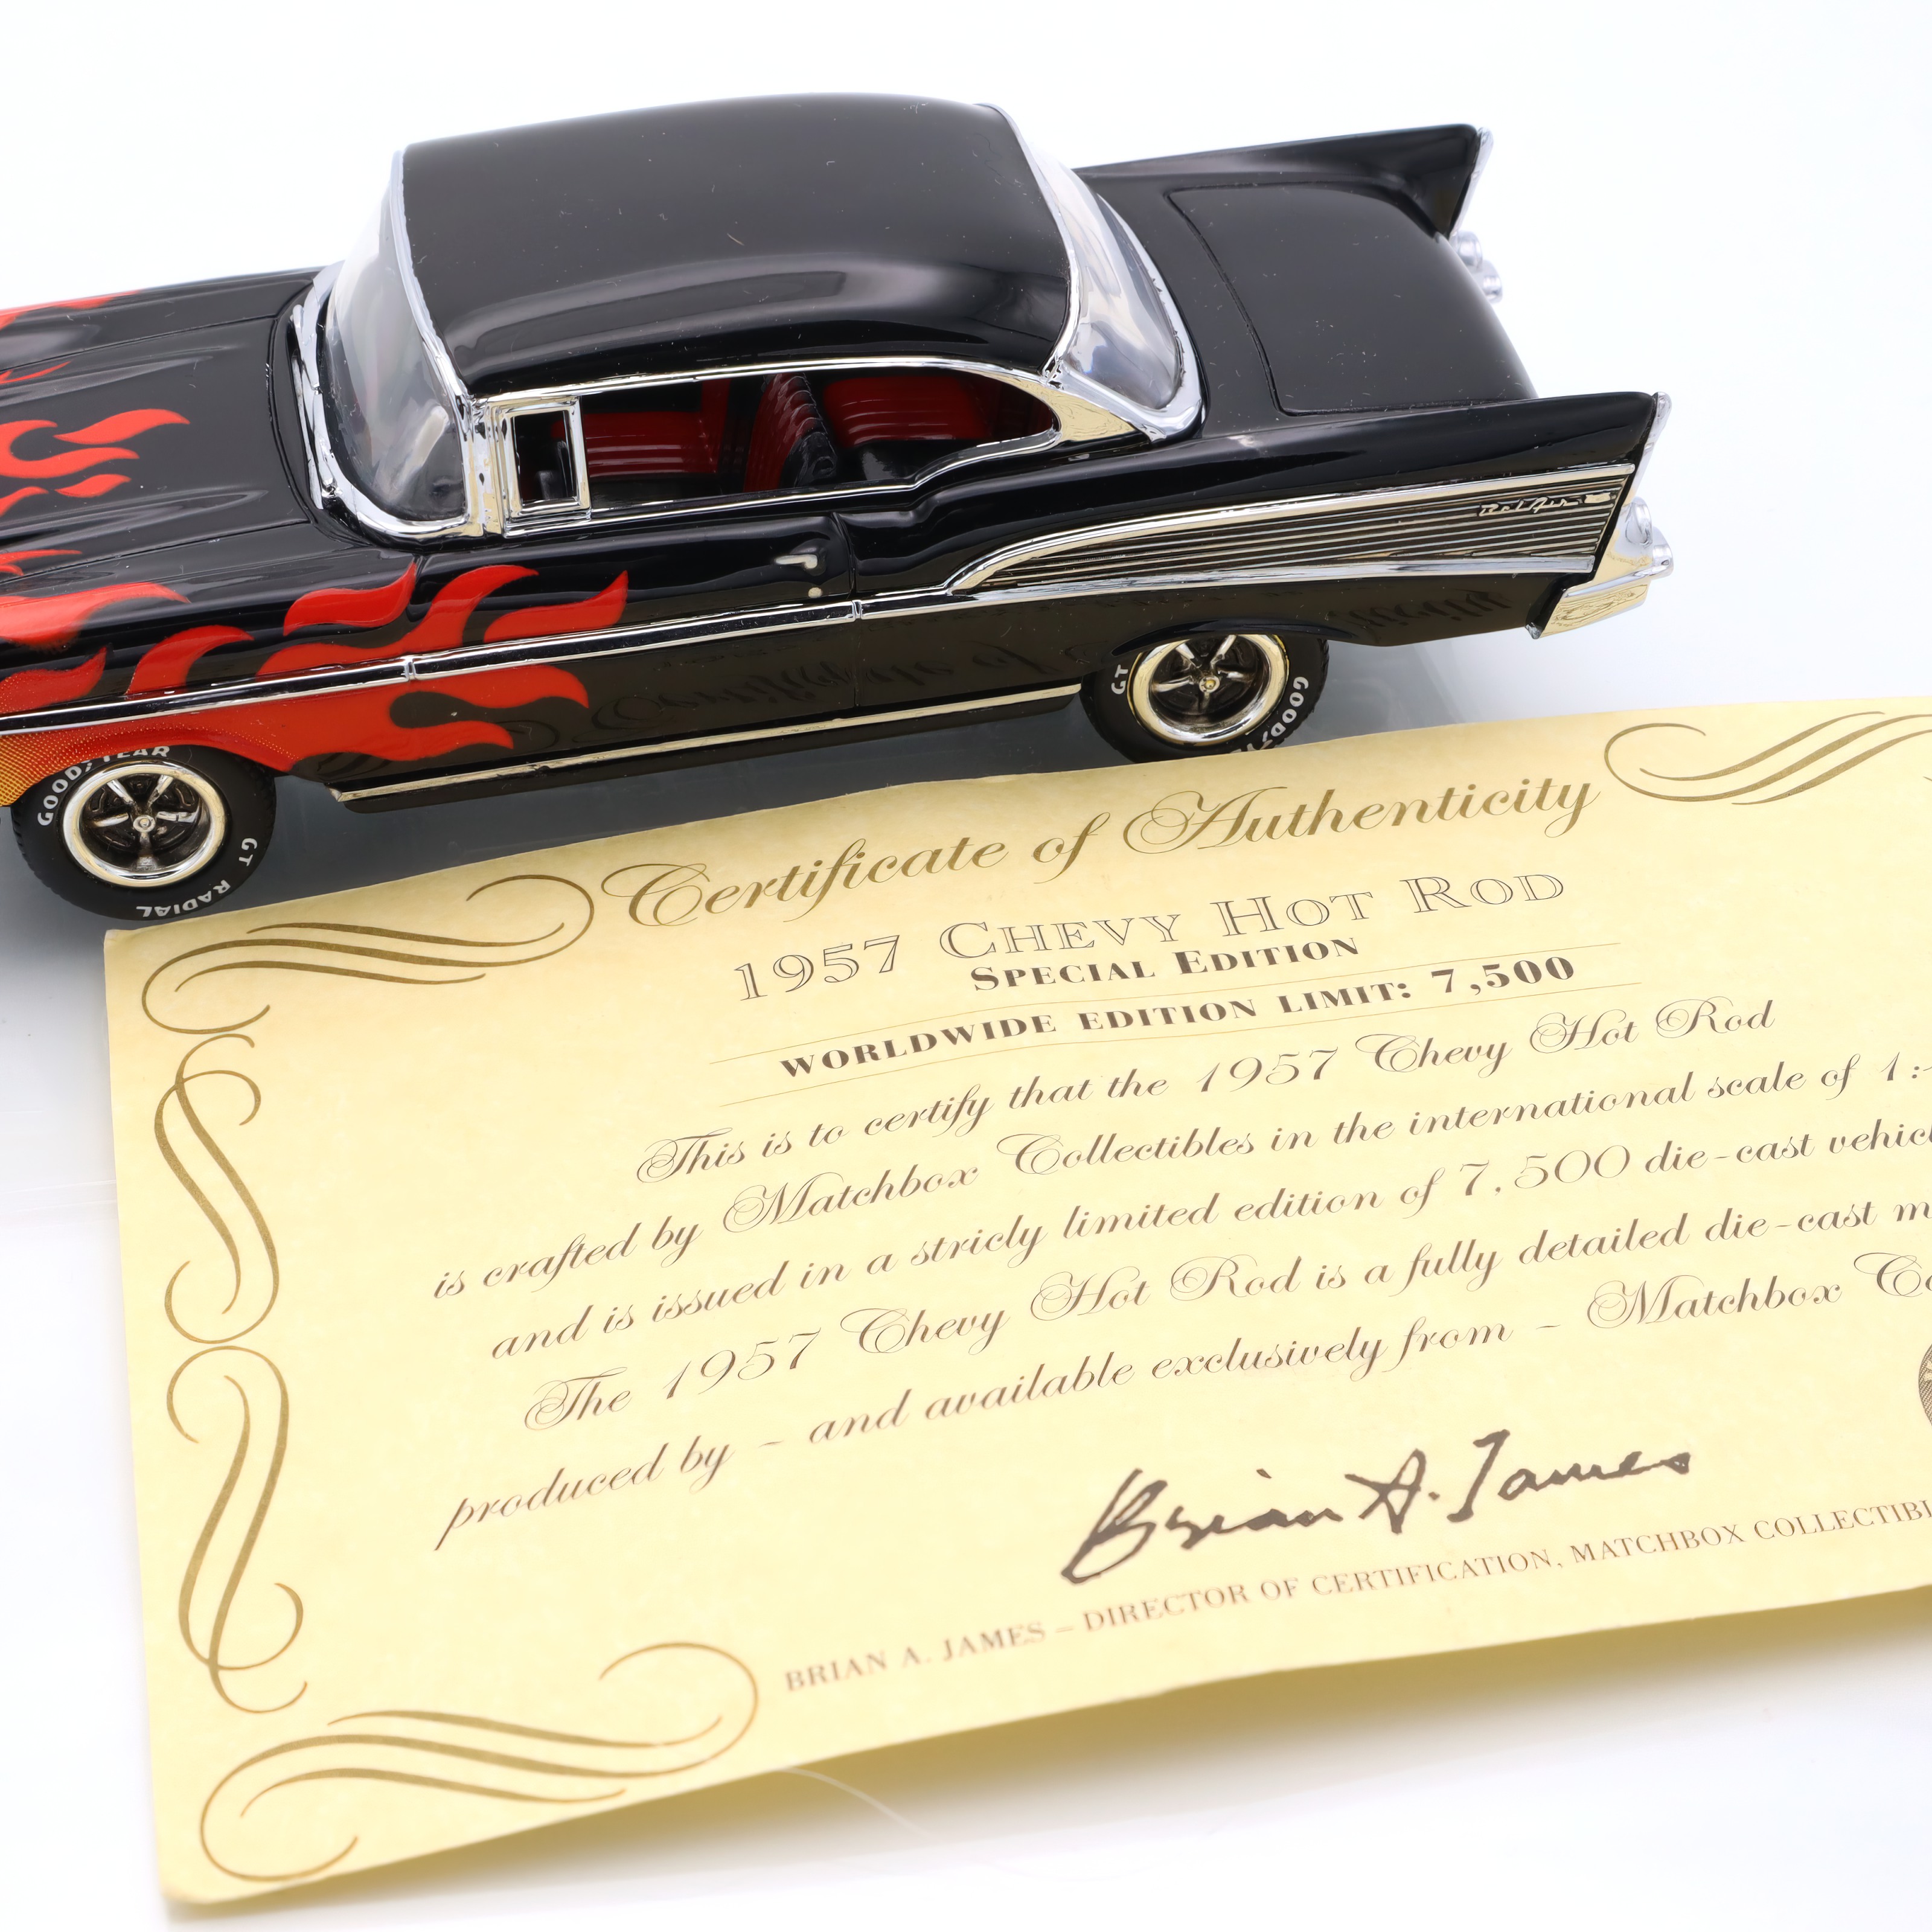 Bel Air
GOODYEAR
GT RADIAL
GT
Certificate of Authenticity
1957 CHEVY HOT ROD
SPECIAL EDITION
WORLDWIDE EDITION LIMIT: 7,500
This is to certify that the 1957 Chevy Hot Rod
is crafted by Matchbox Collectibles in the international scale of 1:
and is issued in a stricly limited edition of 7,500 die-cast vehic
The 1957 Chevy Hot Rod is a fully detailed die-cast m
produced by - and available exclusively from - Matchbox Co
Brian A. James
BRIAN A. JAMES – DIRECTOR OF CERTIFICATION, MATCHBOX COLLECTIBL